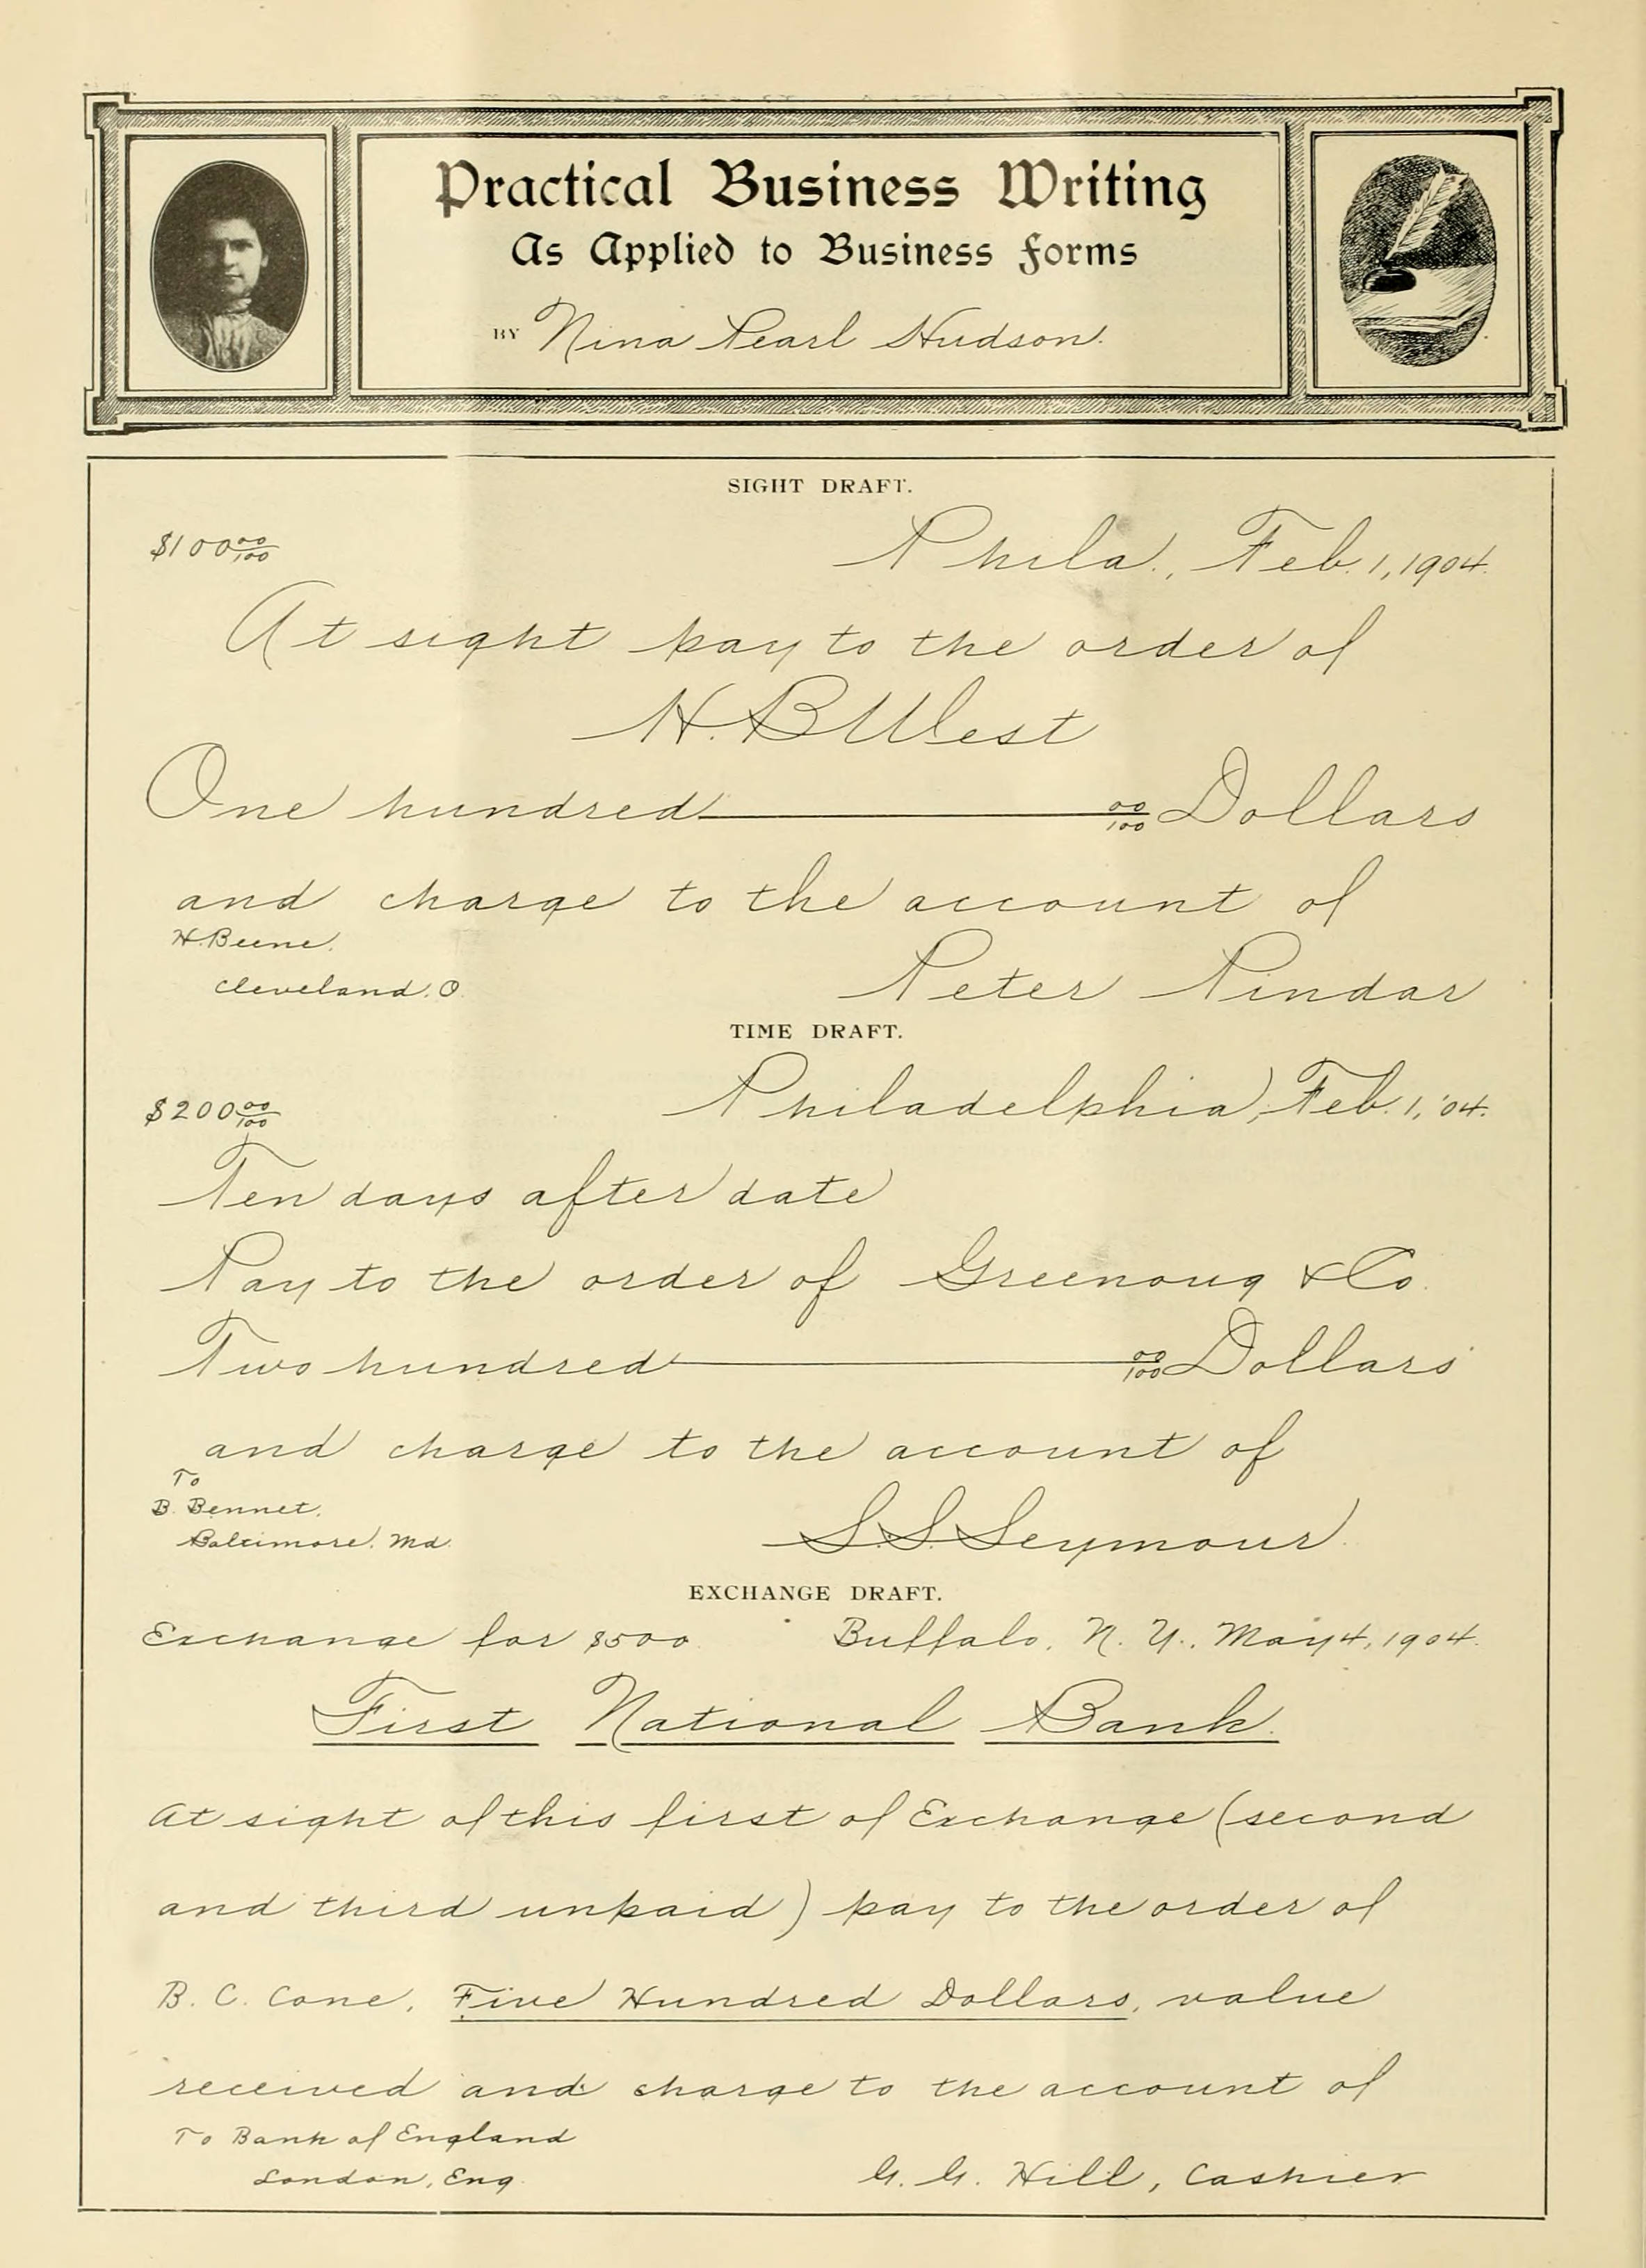 Practical Business Writing
As Applied to Business Forms
BY Nina Pearl Hudson.
SIGHT DRAFT.
$100 00/100
Phila., Feb. 1, 1904.
At sight pay to the order of
H. B West
One hundred 00/100 Dollars
and charge to the account of
H. Beene.
Cleveland. O.
Peter Pindar
TIME DRAFT.
$200 00/100
Philadelphia, Feb. 1, '04.
Ten days after date
Pay to the order of Greenoug & Co.
Two hundred 00/100 Dollars
and charge to the account of
To
B. Bennet,
Baltimore. Md.
S. S. Seymour.
EXCHANGE DRAFT.
Exchange for $500. Buffalo, N. Y., May 4, 1904.
First National Bank.
At sight of this first of Exchange (second
and third unpaid) pay to the order of
B. C. Cone, Five Hundred Dollars, value
received and charge to the account of
To Bank of England
London, Eng.
G. G. Hill, Cashier